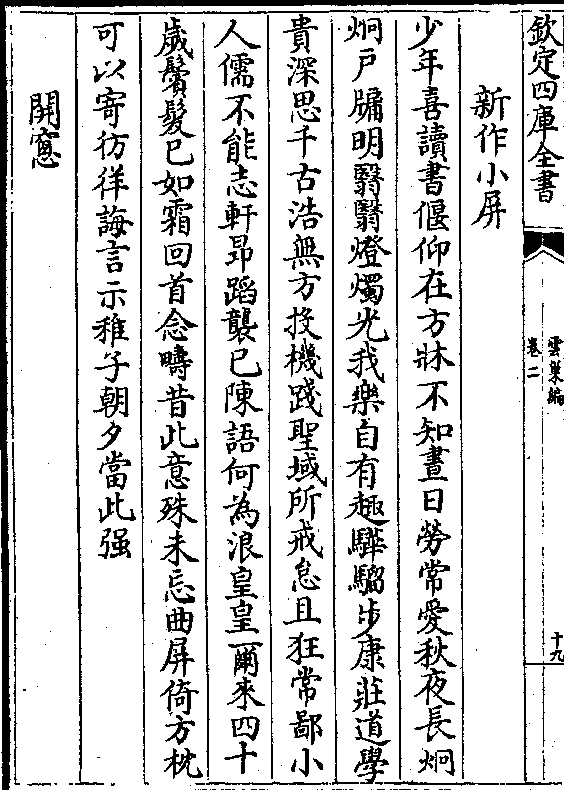 欽定四庫全書
雲巢編
卷二
十九
新作小屏
少年喜讀書偃仰在方牀不知晝日勞常愛秋夜長炯
炯戸牖明翳翳燈燭光我樂自有趣驊騮步康莊道學
貴深思千古浩無方投機踐聖域所戒怠且狂常鄙小
人儒不能志軒昂蹈襲已陳語何為浪皇皇爾來四十
歲鬢髮已如霜回首念疇昔此意殊未忘曲屏倚方枕
可以寄彷徉誨言示稚子朝夕當此强
開窓